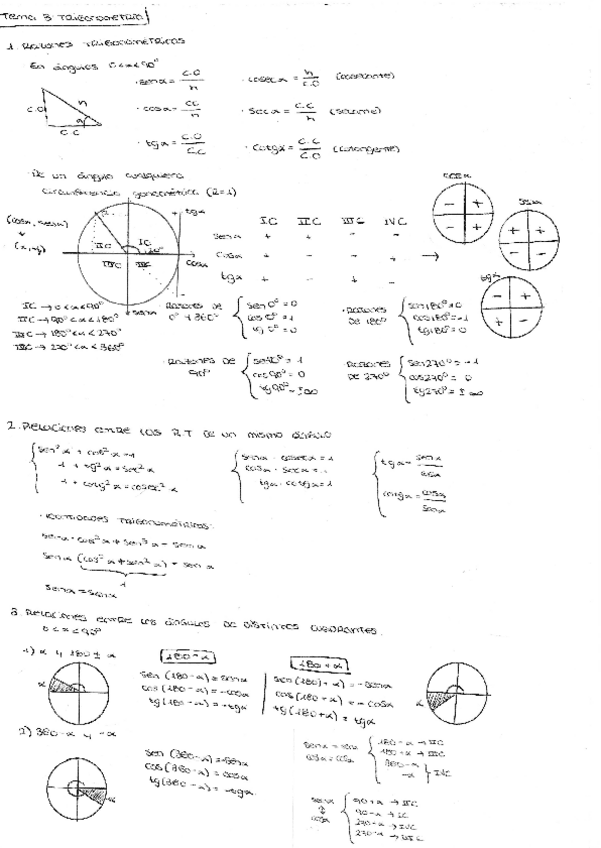 Tema 3 Trigonometría
1. Razones trigonométricas
En ángulos 0<α<90°
· sen α = C.O/h · cosec α = h/C.O (cosecante)
C.O h α C.C
· cos α = CC/h · sec α = C.C/h (secante)
· tg α = C.O/C.C · cotg α = C.C/C.O (cotangente)
· De un ángulo cualquiera
circunferencia goniométrica (R=1)
(cos α, sen α)
(x, y)
tg α
cos α
sen α
IC IIC IIIC IVC
sen α + + - -
cos α + - - +
tg α + - + -
cos α - + - +
sen α + + - -
tg α - + + -
IC → 0<α<90°
IIC → 90°<α<180°
IIIC → 180°<α<270°
→ 270°<α<360°
Razones de 0° y 360° { sen 0° = 0
cos 0° = 1
tg 0° = 0
· Razones de 180° { sen 180° = 0
cos 180° = -1
tg 180° = 0
· Razones de 90° { = 1
cos 90° = 0
tg 90° = ±∞
Razones de 270° { sen 270° = -1
cos 270° = 0
tg 270° = ±∞
2. Relaciones entre las R.T de un mismo ángulo
sen² α + cos² α = 1
1 + tg² α = sec² α
1 + cotg² α = cosec² α
sen α · cosec α = 1
cos α · sec α = 1
tg α · cotg α = 1
tg α = sen α/cos α
cotg α = cos α/sen α
· Identidades trigonométricas:
sen α · cos² α + sen³ α = sen α
sen α (cos² α + sen² α) = sen α
1
sen α = sen α
3. Relaciones entre los ángulos de distintos cuadrantes.
0<α<90°
1) α y 180 ± α
180 - α
sen (180 - α) = sen α
cos (180 - α) = -cos α
tg (180 - α) = -tg α
180 + α
sen (180 + α) = -sen α
cos (180 + α) = -cos α
tg (180 + α) = tg α
2) 360-α y -α
sen (360 - α) = -sen α
cos (360 - α) = cos α
tg (360 - α) = -tg α
sen α = sen α
cos α = cos α
180 - α → IIC
180 + α → IIIC
360 - α
-α } IVC
sen α
cos α
90 + α → IIC
90 - α → IC
270 + α → IVC
270 - α → IIIC